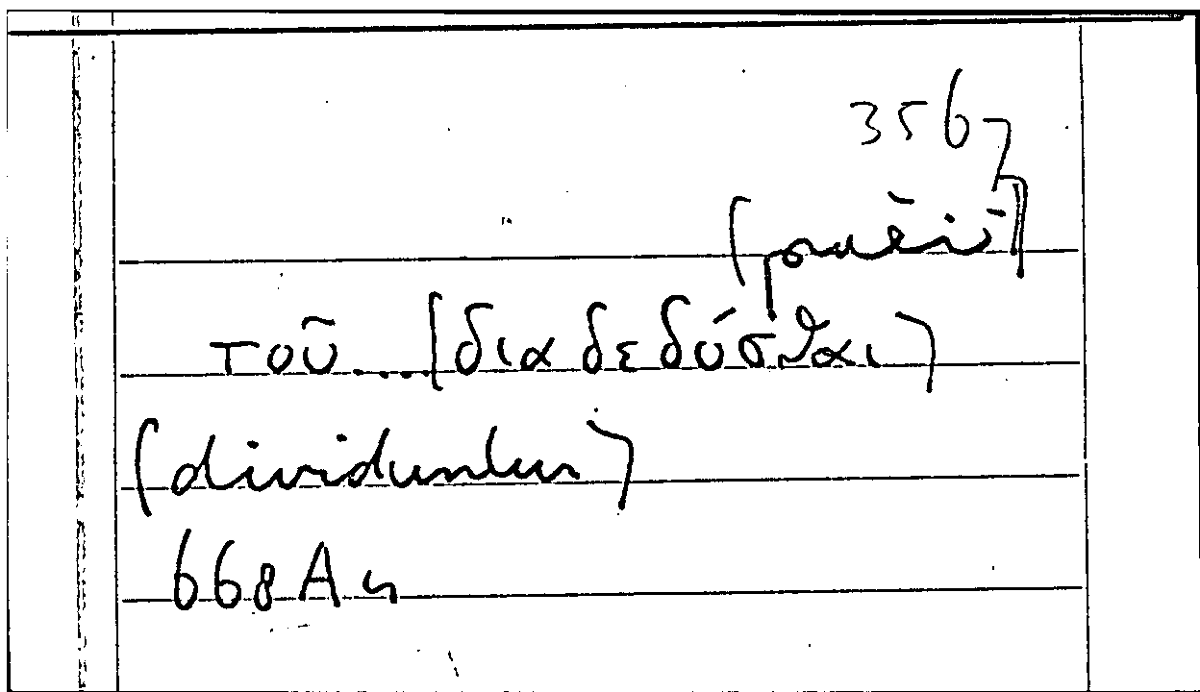 3567
τοῦ....[διαδεδύσθαι)
(dividuntur)
668A4